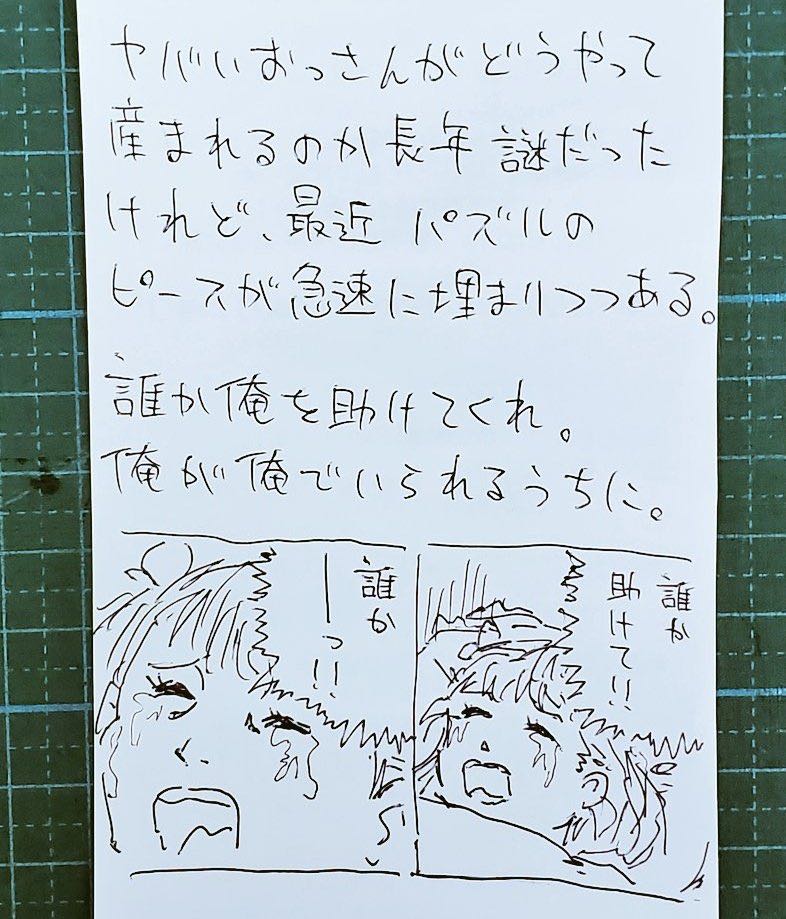 ヤバいおっさんがどうやって
産まれるのか長年謎だった
けれど、最近パズルの
ピースが急速に埋まりつつある。
誰か俺を助けてくれ。
俺が俺でいられるうちに。
誰か
助けて!!
誰か
ーっ!!